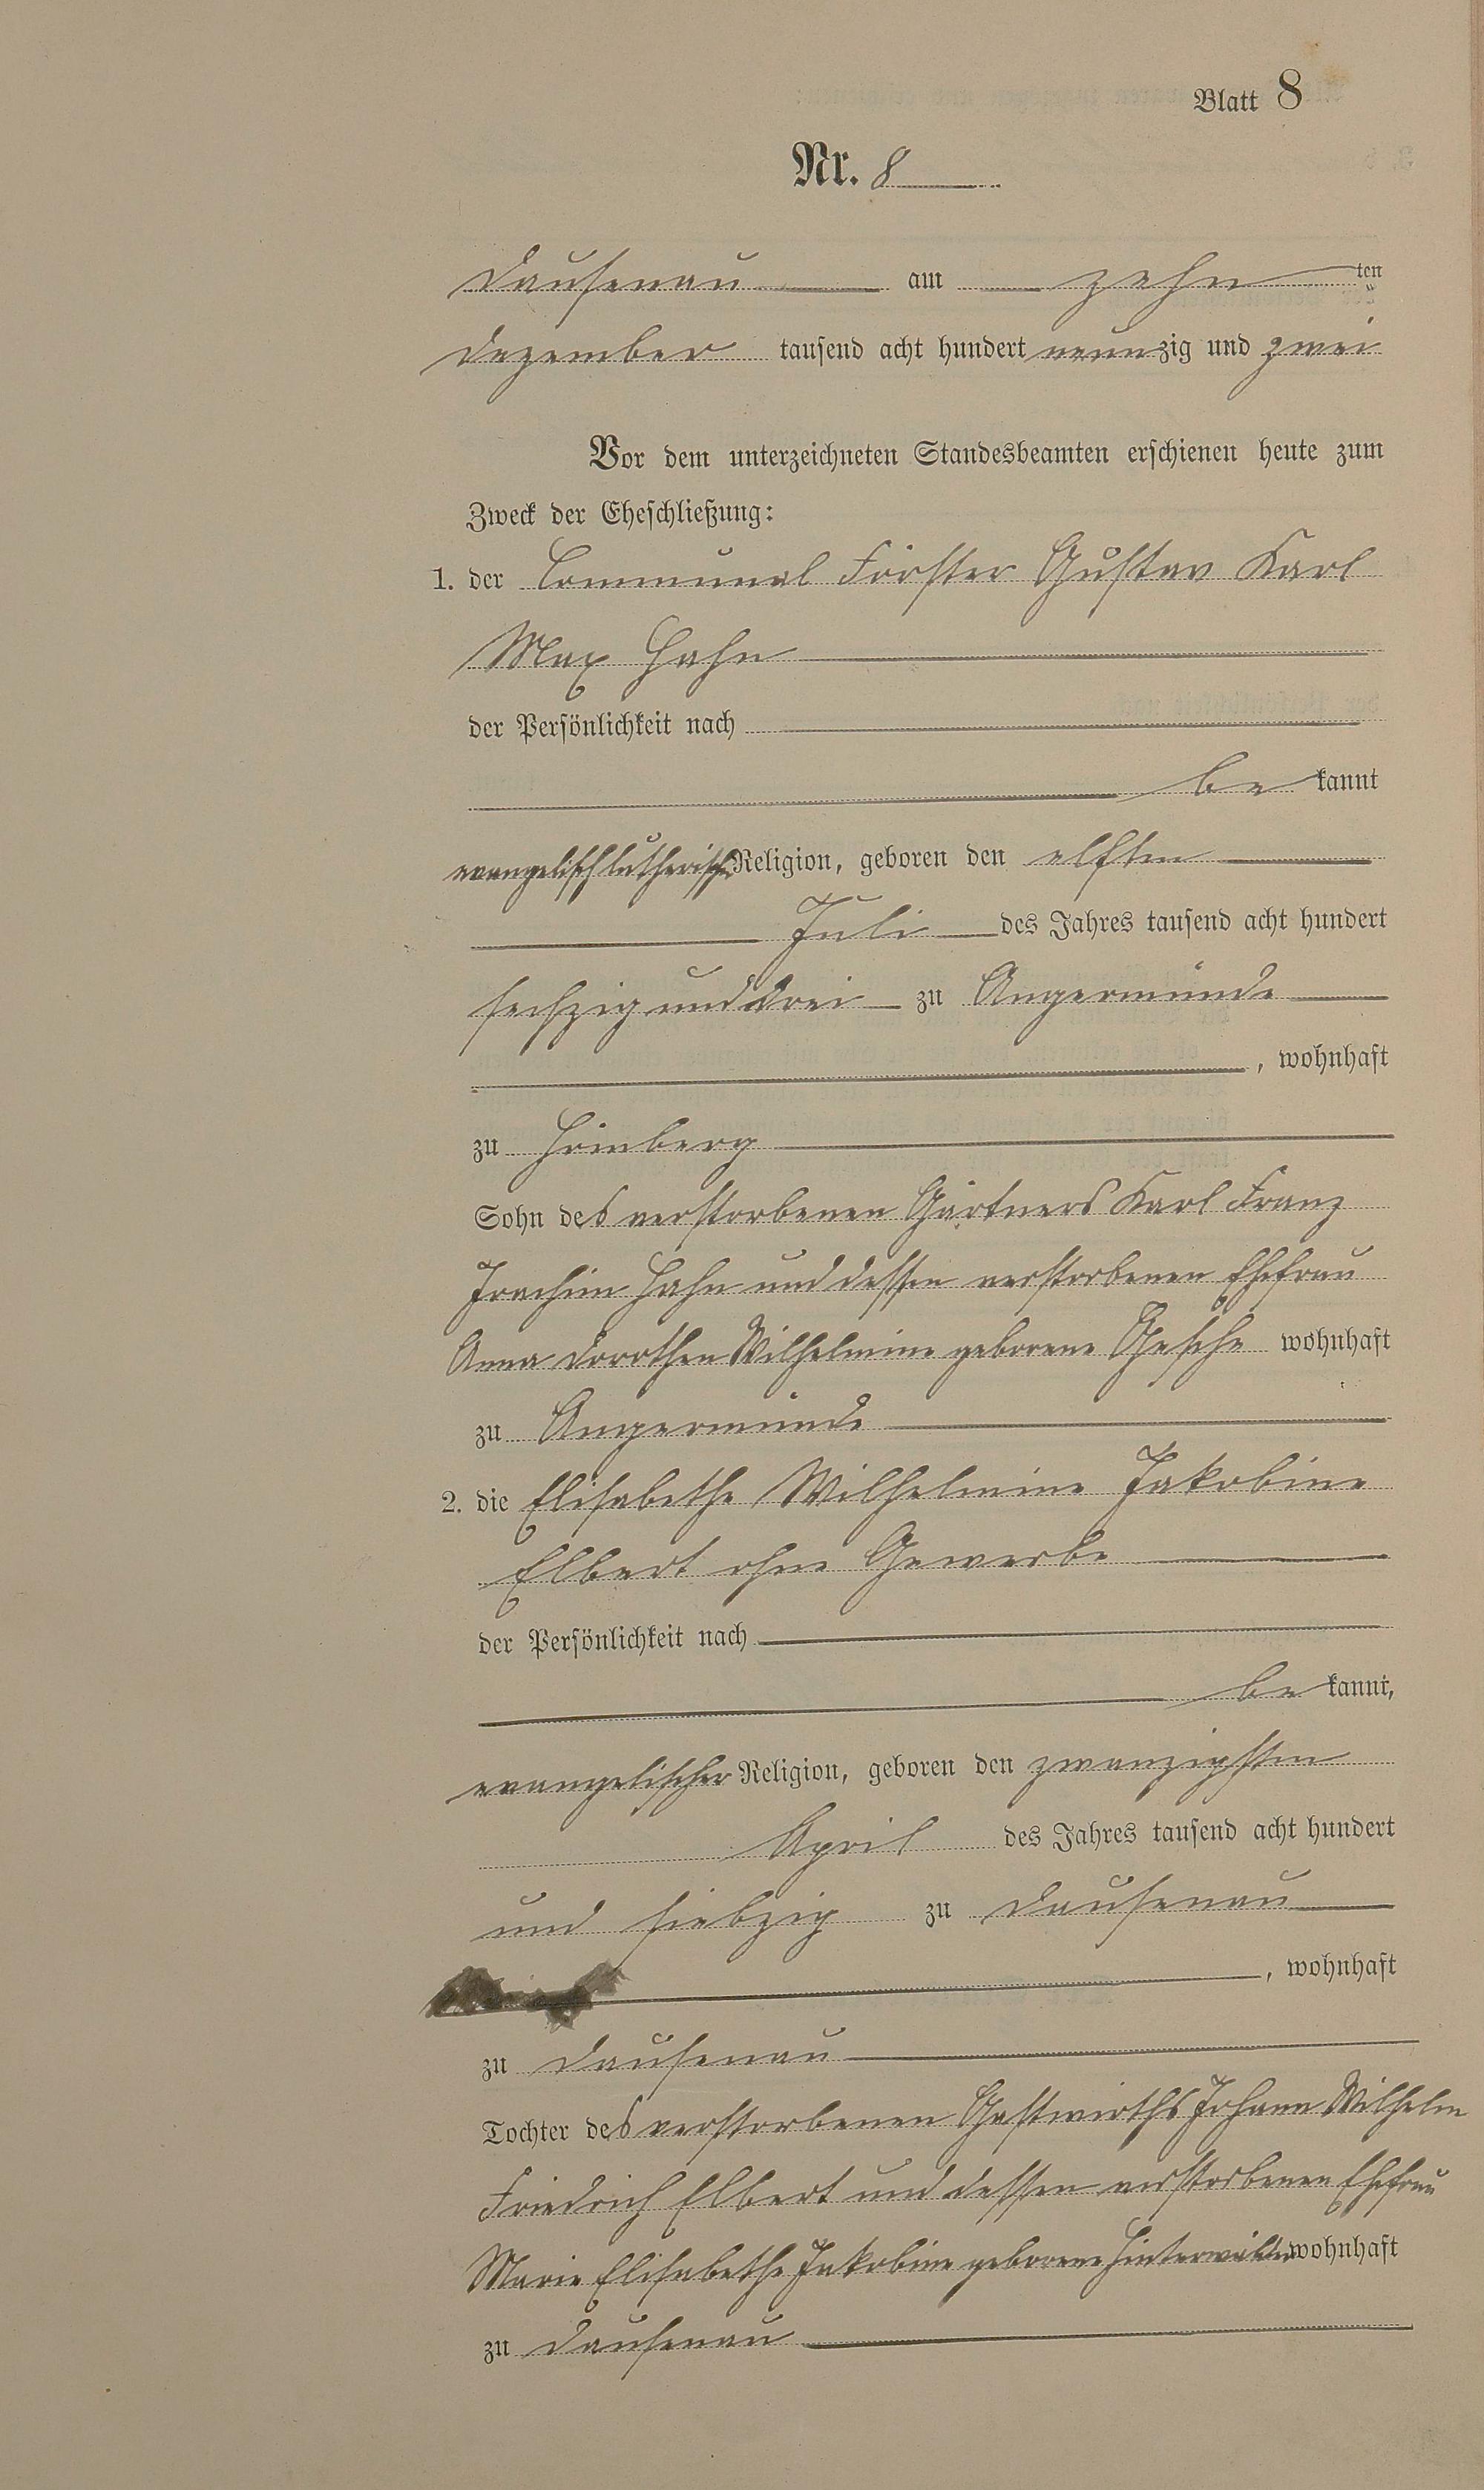 Blatt 8
Nr. 8
Dausenau am zehn ten
Dezember tausend acht hundert neunzig und zwei
Vor dem unterzeichneten Standesbeamten erschienen heute zum
Zweck der Eheschließung:
1. der Communal Förster Gustav Karl
Max Hahn
der Persönlichkeit nach
be kannt
evangelisch lutherischer Religion, geboren den elften
Juli des Jahres tausend acht hundert
sechzig und drei zu Angermünde
, wohnhaft
zu Hömberg
Sohn des verstorbenen Gärtners Karl Franz
Joachim Hahn und dessen verstorbenen Ehefrau
Anna Dorothea Wilhelmine geborene Gesche wohnhaft
zu Angermünde
2. die Elisabethe Wilhelmine Jakobine
Elbert ohne Gewerbe
der Persönlichkeit nach
be kannt,
evangelischer Religion, geboren den zwanzigsten
April des Jahres tausend acht hundert
und siebzig zu Dausenau
, wohnhaft
zu Dausenau
Tochter des verstorbenen Gastwirths Johann Wilhelm
Friedrich Elbert und dessen verstorbenen Ehefrau
Marie Elisabethe Jakobine geborene Hinterwäller wohnhaft
zu Dausenau